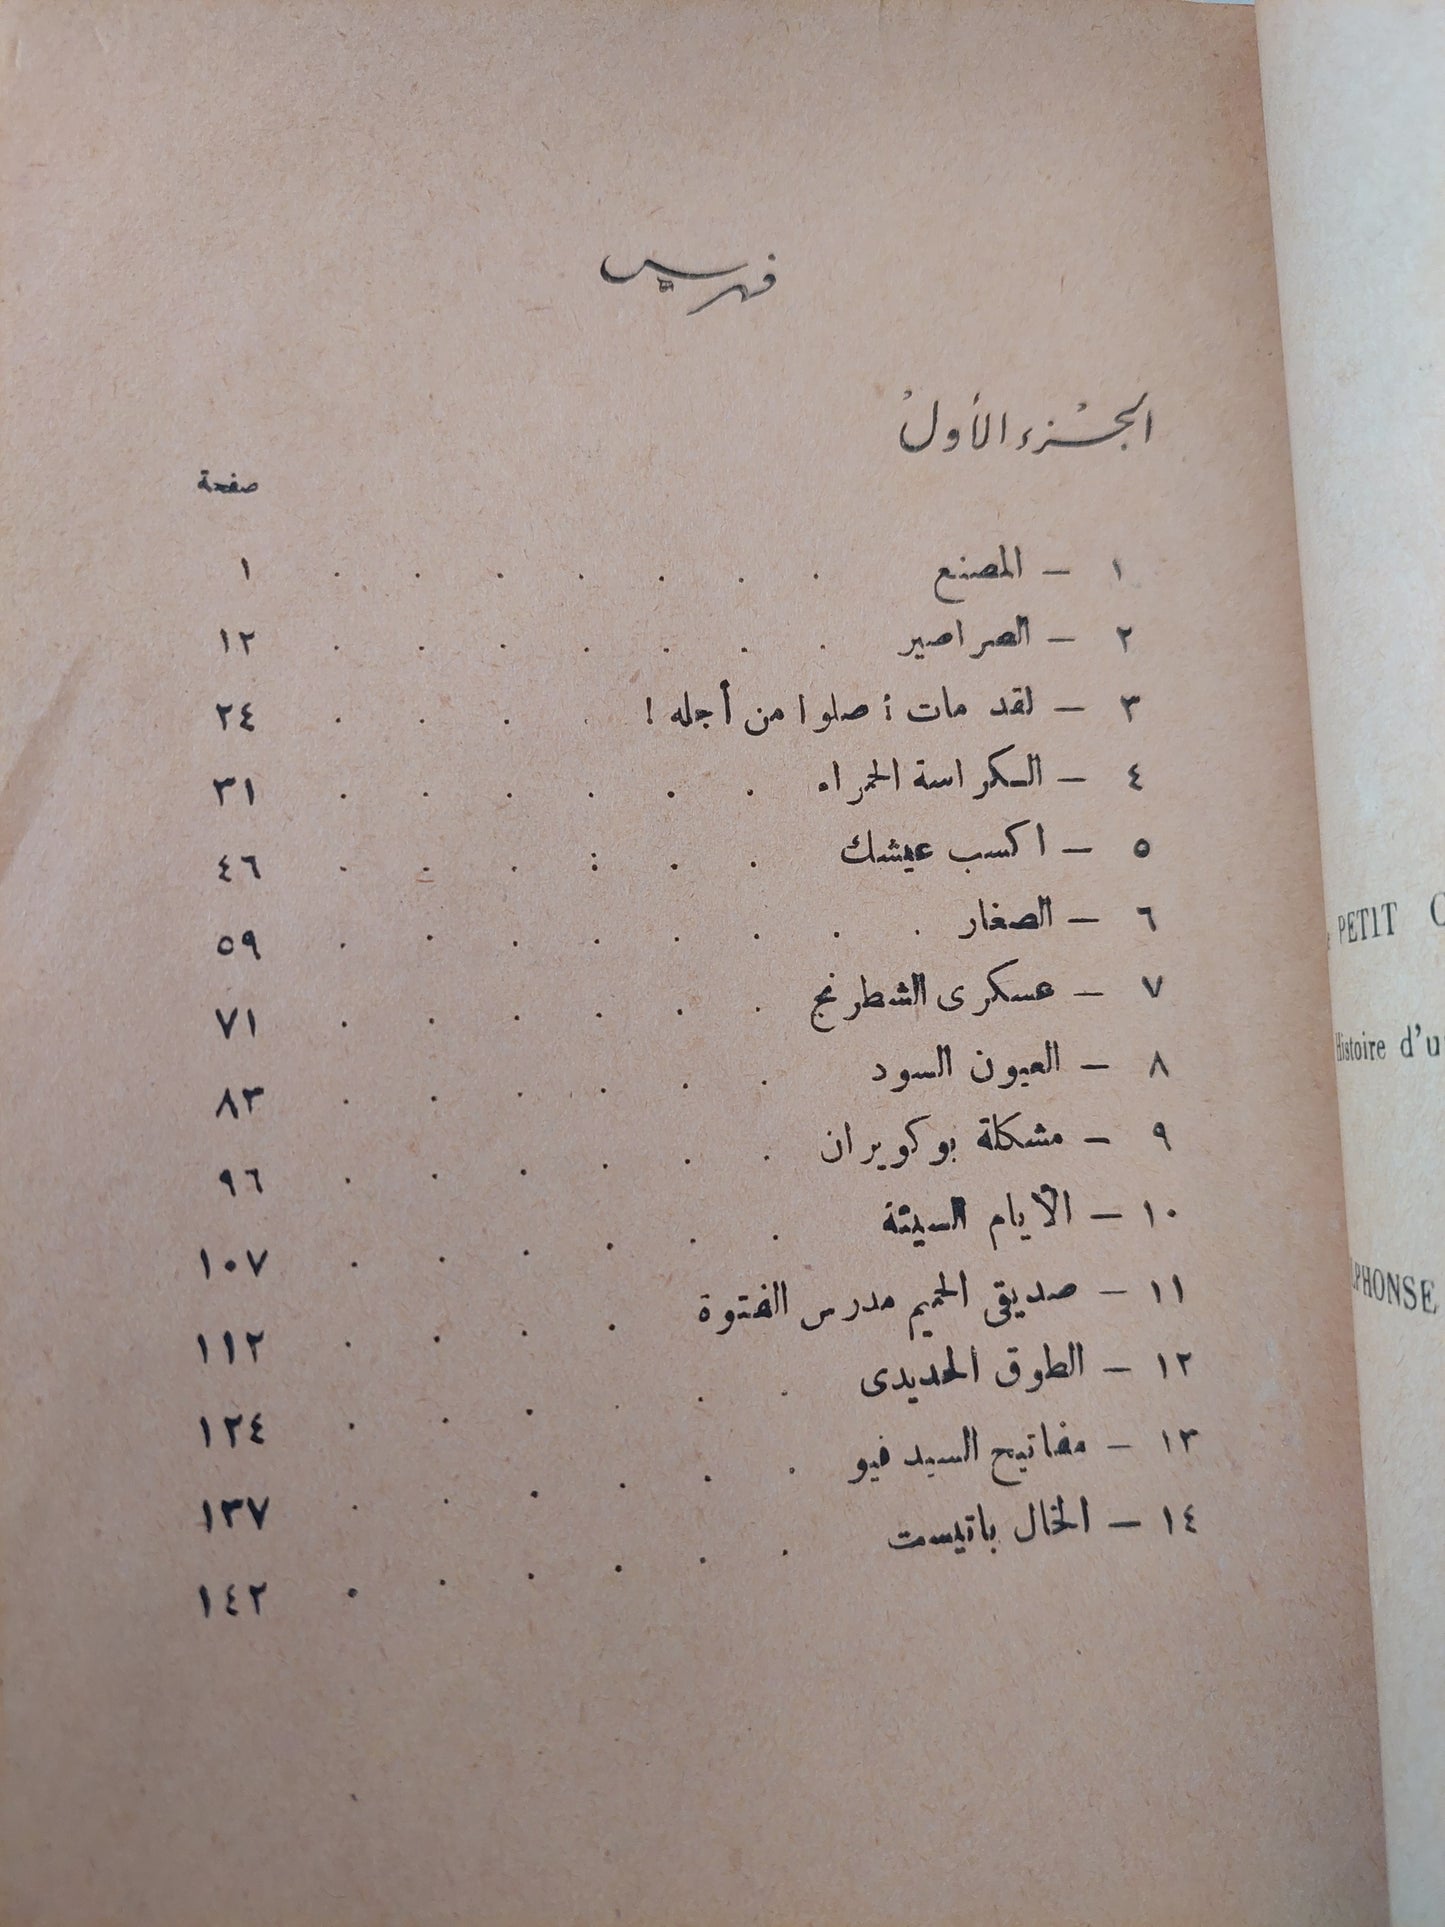 فهرس
الجزء الأول
صفحة
١ – المصنع . . . . . . . ١
٢ – الصراصير . . . . . . . ١٢
٣ – لقد مات ؛ صلوا من أجله ! . . . . ٢٤
٤ – الكراسة الحمراء . . . . . . ٣١
٥ – اكسب عيشك . . . : . . ٤٦
٦ – الصغار . . . . . . . . ٥٩
٧ – عسكرى الشطرنج . . . . . . ٧١
٨ – العيون السود . . . . . . ٨٣
٩ – مشكلة بوكويران . . . . . . ٩٦
١٠ – الأيام السيئة . . . . . . ١٠٧
١١ – صديقى الحميم مدرس الفتوة . . . . ١١٢
١٢ – الطوق الحديدى . . . . . . ١٢٤
١٣ – مفاتيح السيد فيو . . . . . . ١٣٧
١٤ – الخال باتيست . . . . . . ١٤٢
PETIT
Histoire d'u
ALPHONSE